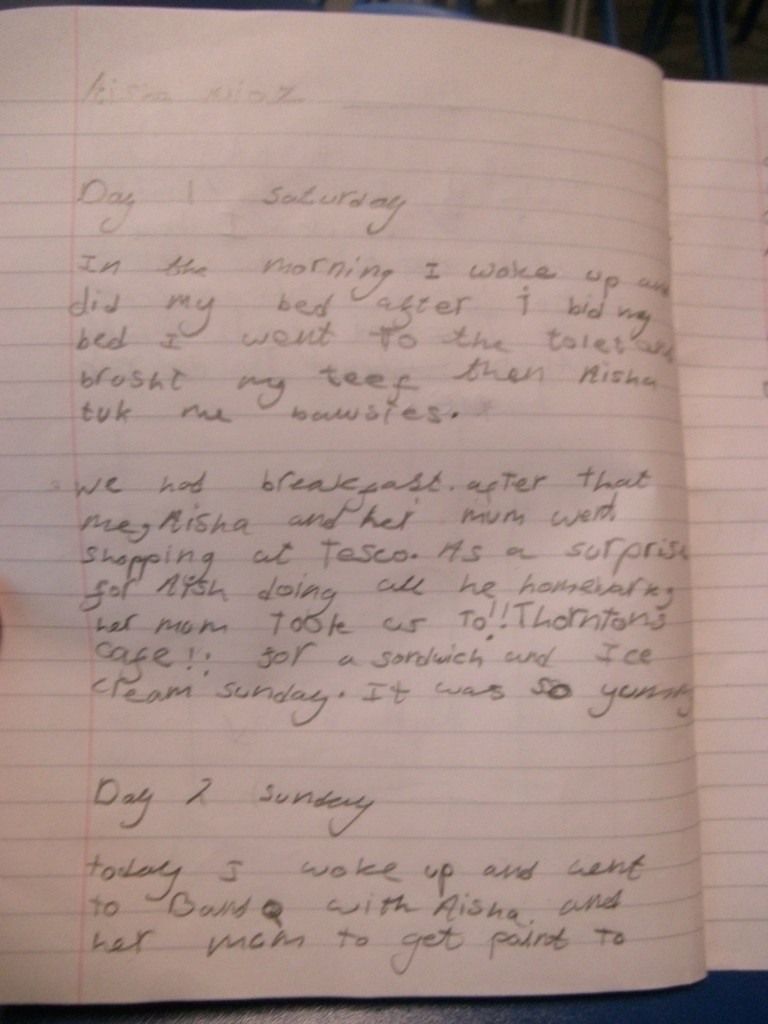 Day 1 saturday
In the morning I woke up and
did my bed after i bid my
bed I went to the tolet and
brosht my teef then Aisha
tuk me dawsies.
we had breakfast. after that
me, Aisha and her mum went
shopping at Tesco. As a surprise
for Aish doing all he homewark,
her mom took us to!! Thorntons
cafe!! for a sandwich and Ice
cream sunday. It was so yummy
Day 2 sunday
today I woke up and went
to BandQ with Aisha. and
her mum to get paint to